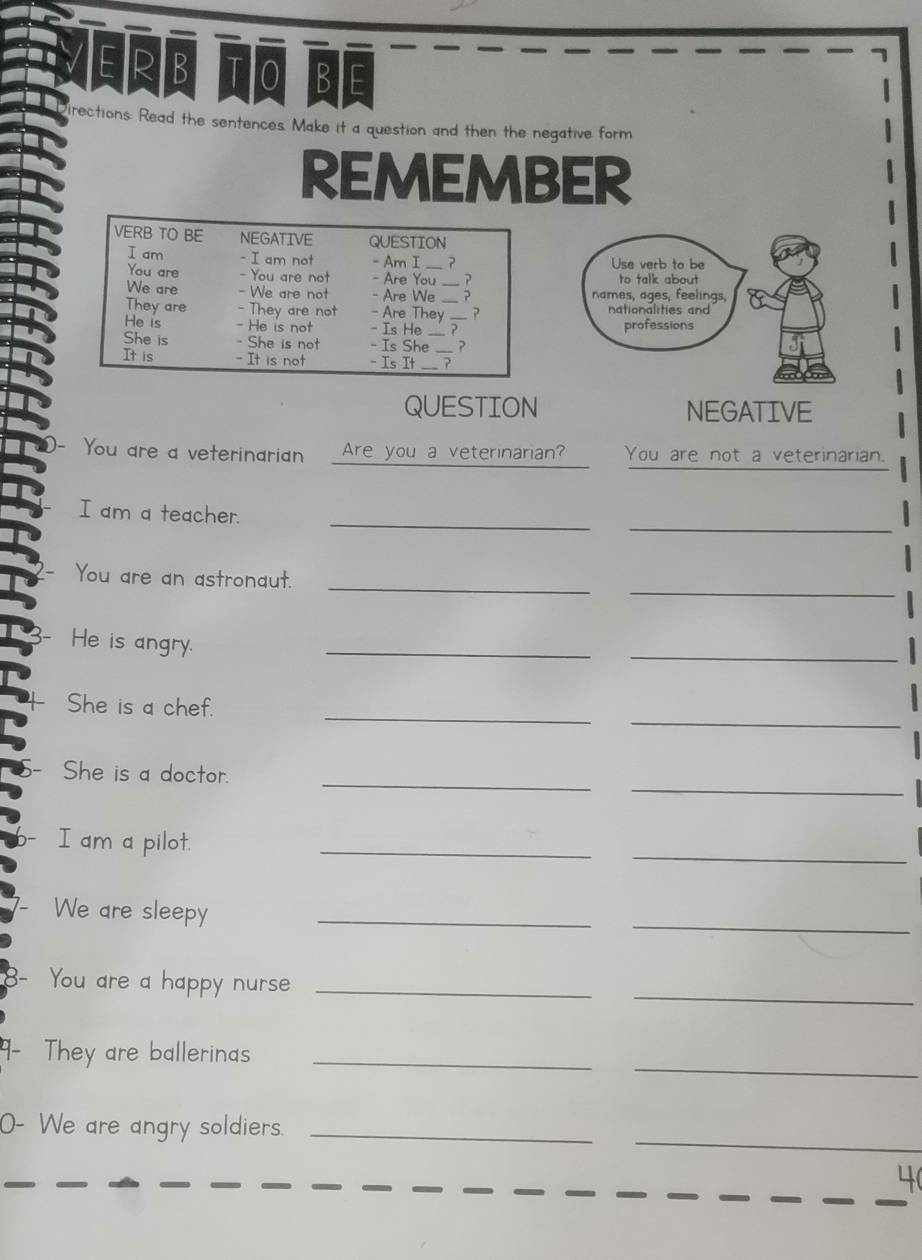 VERB TO BE
Directions: Read the sentences. Make it a question and then the negative form
REMEMBER
VERB TO BE NEGATIVE QUESTION
I am - I am not - Am I __ ?
You are - You are not - Are You __ ?
We are - We are not - Are We __ ?
They are - They are not - Are They __ ?
He is - He is not - Is He __ ?
She is - She is not - Is She __ ?
It is - It is not - Is It __ ?
Use verb to be
to talk about
names, ages, feelings,
nationalities and
professions
QUESTION NEGATIVE
0- You are a veterinarian Are you a veterinarian? You are not a veterinarian.
- I am a teacher.
2- You are an astronaut.
3- He is angry.
4- She is a chef.
5- She is a doctor.
6- I am a pilot.
7- We are sleepy
8- You are a happy nurse
9- They are ballerinas
0- We are angry soldiers.